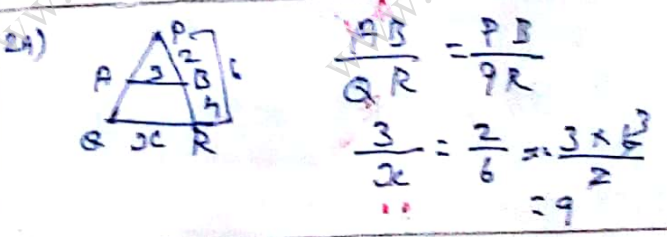 24)
P
2
6
A 3 B
4
Q x R
AB/QR = PB/PR
3/x = 2/6 x = 3 × 6 3/2
= 9